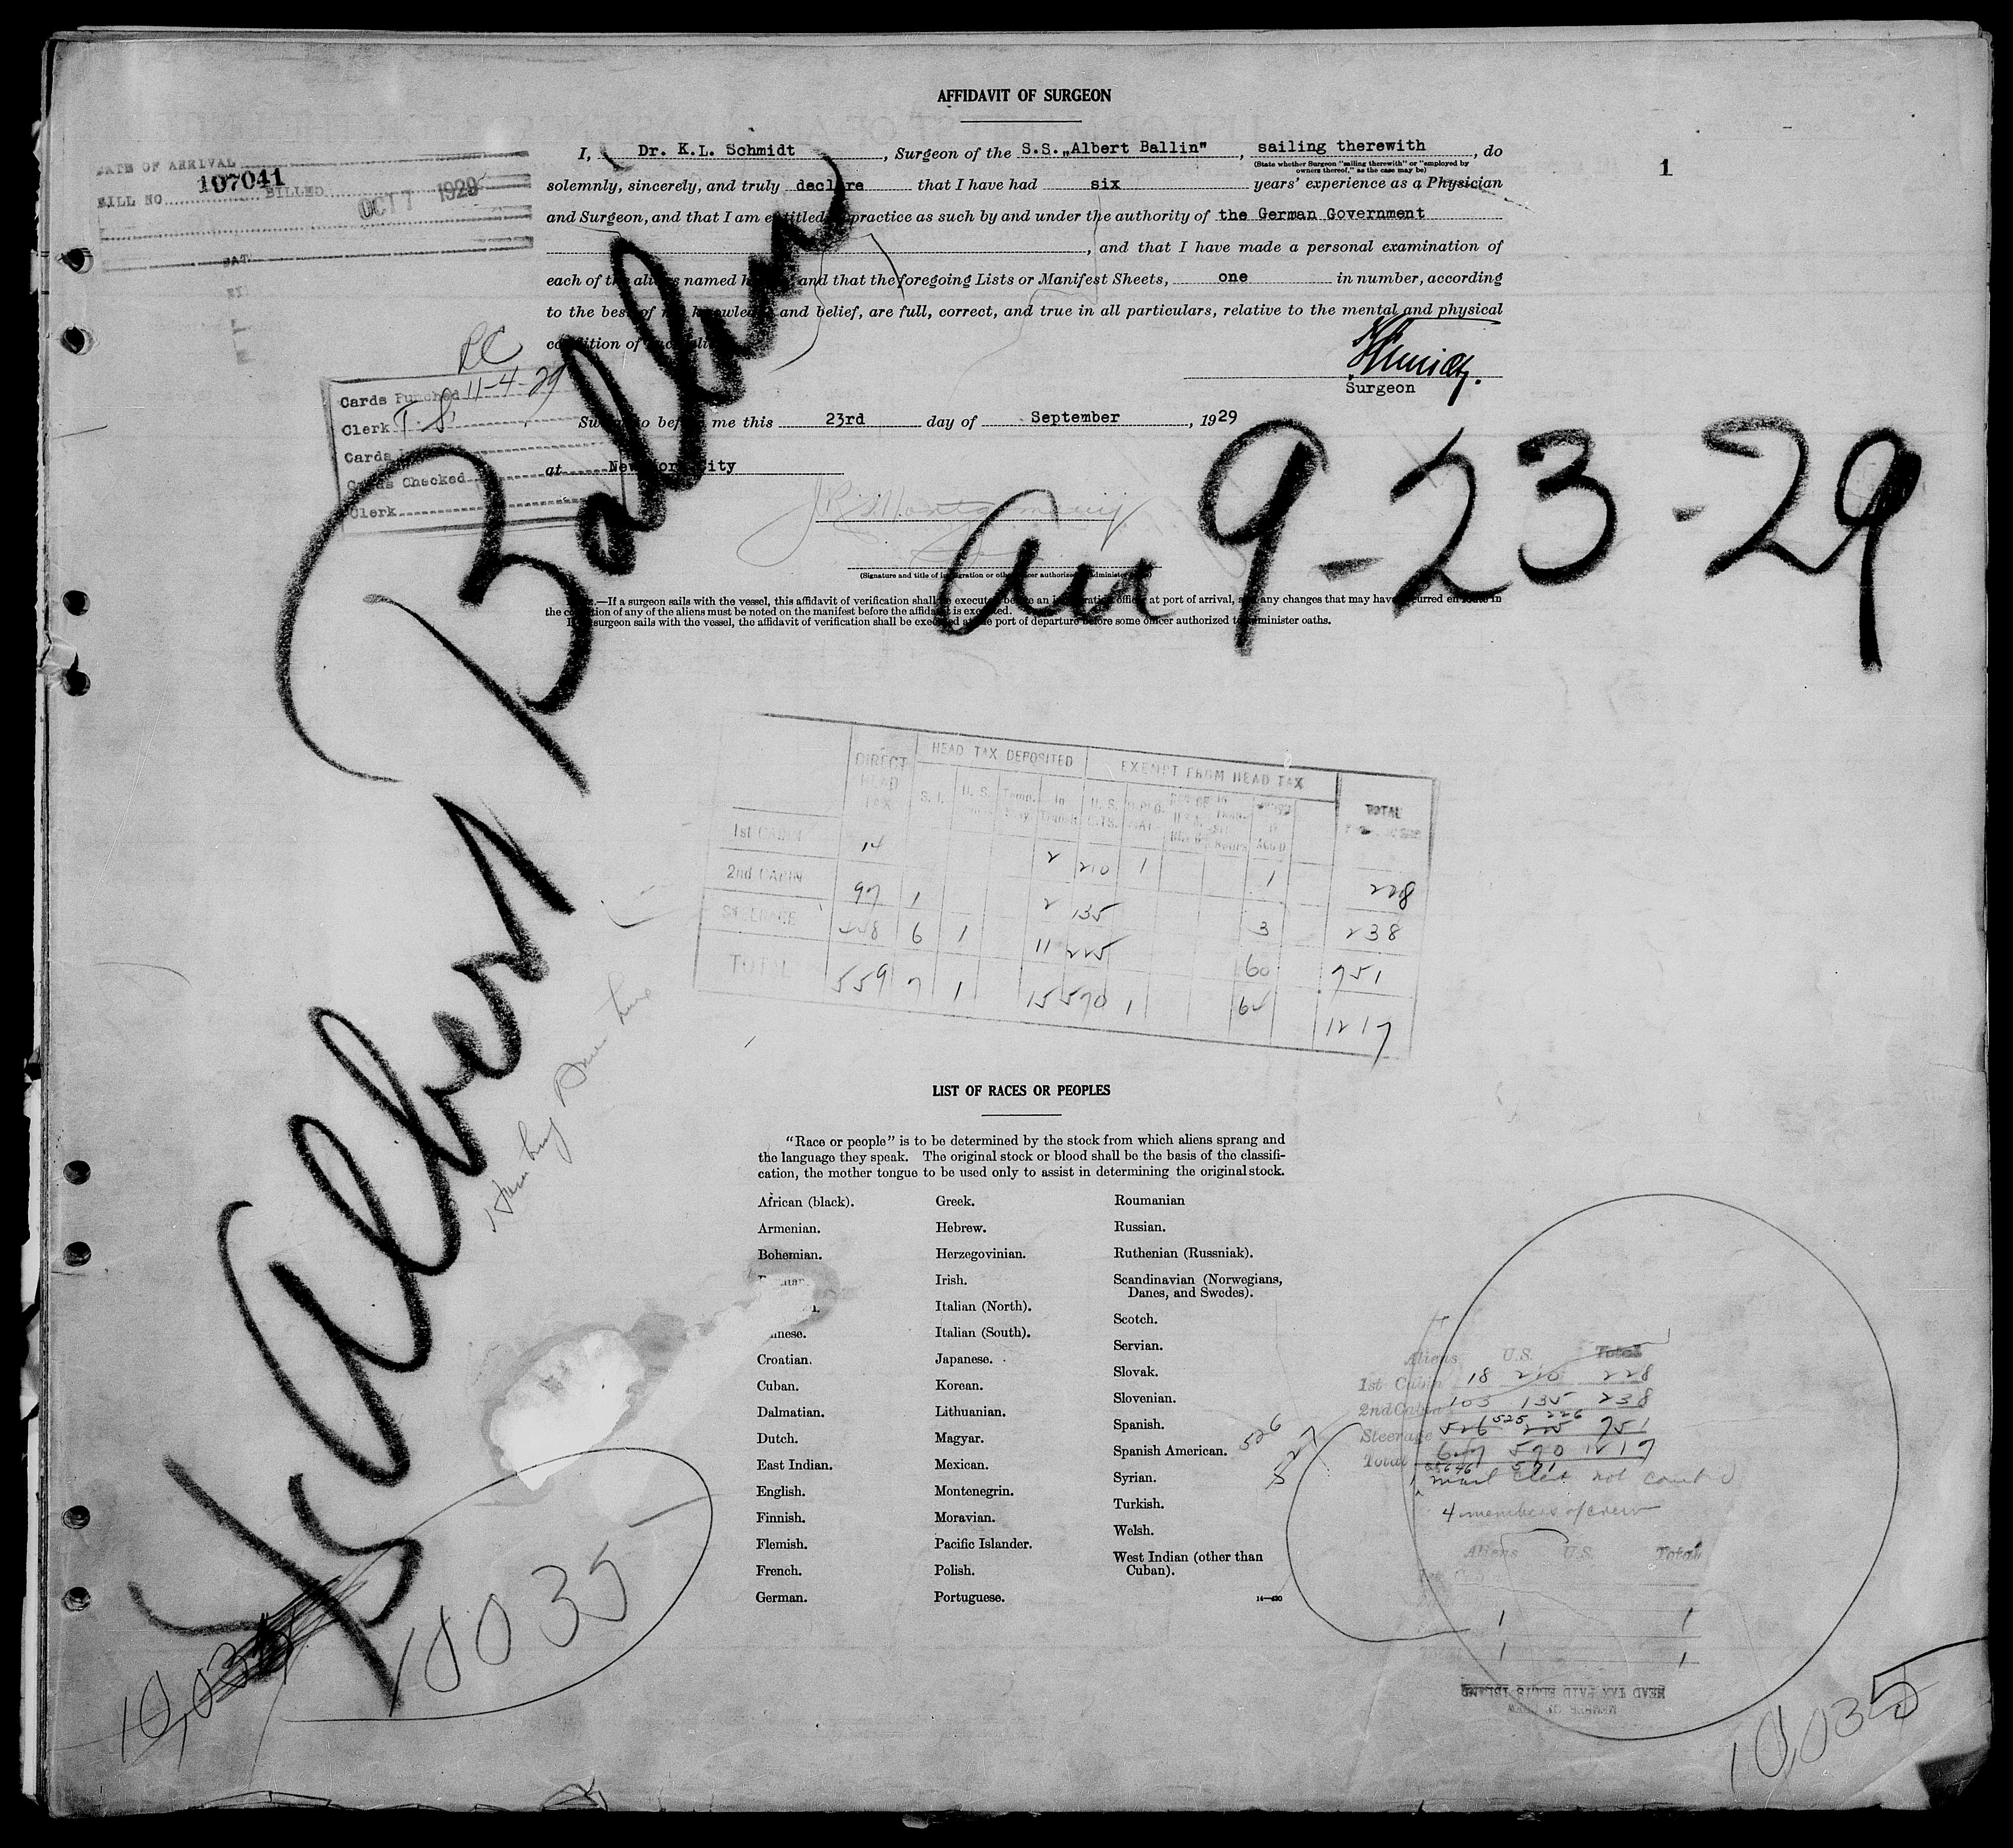 AFFIDAVIT OF SURGEON
DATE OF ARRIVAL
BILL NO. 107041 BILLED OCT 7 1929
1
I, Dr. K.L. Schmidt, Surgeon of the S.S. „Albert Ballin", sailing therewith, do
(State whether Surgeon "sailing therewith" or "employed by
owners thereof," as the case may be)
solemnly, sincerely, and truly declare that I have had six years' experience as a Physician
and Surgeon, and that I am entitled practice as such by and under the authority of the German Government
, and that I have made a personal examination of
each of the aliens named and that the foregoing Lists or Manifest Sheets, one in number, according
to the best of my knowledge and belief, are full, correct, and true in all particulars, relative to the mental and physical
condition of
Surgeon
Cards Punched 11-4-29
Clerk
Cards
Cards Checked
Clerk
Sworn to before me this 23rd day of September, 1929
at New York City
J R Montgomery
(Signature and title of immigration or other officer authorized administer
—If a surgeon sails with the vessel, this affidavit of verification shall be executed before an immigration officer at port of arrival, and any changes that may have occurred en route in
the condition of any of the aliens must be noted on the manifest before the affidavit is executed.
surgeon sails with the vessel, the affidavit of verification shall be executed at the port of departure before some officer authorized to administer oaths.
SS Albert Ballin
Arr 9-23-29
DIRECT HEAD TAX HEAD TAX DEPOSITED EXEMPT FROM HEAD TAX TOTAL
S. I. U. S. Temp. In Transit U. S. CITS.
1st CABIN 14 2 210 1 1 228
2nd CABIN 97 1 2 135 3 238
STEERAGE 448 6 1 11 225 60 751
TOTAL 559 7 1 15 570 1 64 1217
LIST OF RACES OR PEOPLES
"Race or people" is to be determined by the stock from which aliens sprang and
the language they speak. The original stock or blood shall be the basis of the classifi-
cation, the mother tongue to be used only to assist in determining the original stock.
African (black).
Armenian.
Bohemian.
Croatian.
Cuban.
Dalmatian.
Dutch.
East Indian.
English.
Finnish.
Flemish.
French.
German.
Greek.
Hebrew.
Herzegovinian.
Irish.
Italian (North).
Italian (South).
Japanese.
Korean.
Lithuanian.
Magyar.
Mexican.
Montenegrin.
Moravian.
Pacific Islander.
Polish.
Portuguese.
Roumanian
Russian.
Ruthenian (Russniak).
Scandinavian (Norwegians,
Danes, and Swedes).
Scotch.
Servian.
Slovak.
Slovenian.
Spanish.
Spanish American.
Syrian.
Turkish.
Welsh.
West Indian (other than
Cuban).
Aliens U.S. Total
1st Cabin 18 210 228
2nd Cabin 103 135 238
526 525 226
Steerage 526 225 751
Total 647 570 1217
646 571
mail Clerk not counted
4 members of crew
Aliens U.S. Total
1 1
1 1
HEAD TAX PAID ELLIS ISLAND
10035
10,035